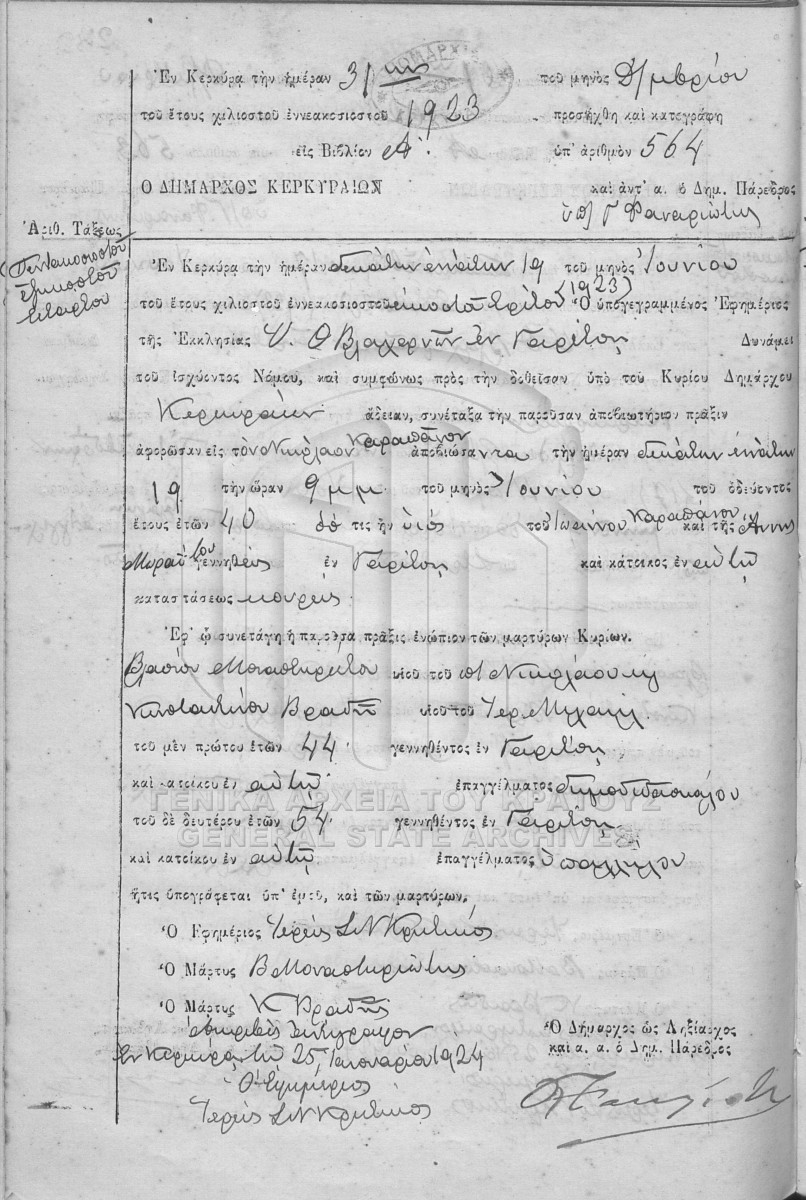 Ἐν Κερκύρᾳ τὴν ἡμέραν 31ην τοῦ μηνὸς Δ/μβρίου
τοῦ ἔτους χιλιοστοῦ ἐννεακοσιοστοῦ 1923 προσήχθη καὶ κατεγράφη
εἰς Βιβλίον Α' ὑπ' ἀριθμὸν 564
Ο ΔΗΜΑΡΧΟΣ ΚΕΡΚΥΡΑΙΩΝ καὶ ἀντ' α. ὁ Δημ. Πάρεδρος
Γ Φαναριώτης
Ἀριθ. Τάξεως
Πεντακοσιοστοῦ
ἑξηκοστοῦ
τετάρτου
Ἐν Κερκύρᾳ τὴν ἡμέραν δεκάτην ἐνάτην 19 τοῦ μηνὸς Ἰουνίου
τοῦ ἔτους χιλιοστοῦ ἐννεακοσιοστοῦ εἰκοστοῦ τρίτου (1923) Ὁ ὑπογεγραμμένος Ἐφημέριος
τῆς Ἐκκλησίας Υ. Θ Βλαχερνῶν ἐν Γαρίτσῃ Δυνάμει
τοῦ ἰσχύοντος Νόμου, καὶ συμφώνως πρὸς τὴν δοθεῖσαν ὑπὸ τοῦ Κυρίου Δημάρχου
Κερκυραίων ἄδειαν, συνέταξα τὴν παροῦσαν ἀποβιωτήριον πρᾶξιν
ἀφορῶσαν εἰς τὸν Νικόλαον Καραπάνου ἀποβιώσαντα τὴν ἡμέραν δεκάτην ἐνάτην
19 τὴν ὥραν 9 μμ τοῦ μηνὸς Ἰουνίου τοῦ ὁδεύοντος
ἔτους ἐτῶν 40 ὅς τις ἦν υἱὸς τοῦ Ἰωάννου Καραπάνου καὶ τῆς Ἄννης
γεννηθεὶς ἐν Γαρίτσῃ καὶ κάτοικος ἐν αὐτῇ
καταστάσεως κουρεὺς
Ἐφ' ᾧ συνετάγη ἡ παροῦσα πρᾶξις ἐνώπιον τῶν μαρτύρων Κυρίων.
Βλασίου Μοναστηριώτου υἱοῦ τοῦ π Νικολάου κ
Κωνσταντίνου Βραδῆ υἱοῦ τοῦ Ἱερ. Μιχαήλ
τοῦ μὲν πρώτου ἐτῶν 44 γεννηθέντος ἐν Γαρίτσῃ
καὶ κατοίκου ἐν αὐτῇ ἐπαγγέλματος δημοδιδασκάλου
τοῦ δὲ δευτέρου ἐτῶν 54 γεννηθέντος ἐν Γαρίτσῃ
καὶ κατοίκου ἐν αὐτῇ ἐπαγγέλματος ὑπαλλήλου
ἥτις ὑπογράφεται ὑπ' ἐμοῦ, καὶ τῶν μαρτύρων.
Ὁ Ἐφημέριος Ἱερεὺς Σ Ν Κρητικός
Ὁ Μάρτυς Β Μοναστηριώτης
Ὁ Μάρτυς Κ Βραδῆς
Ἀκριβὲς Ἀντίγραφον
Ἐν Κερκύρᾳ τῇ 25 Ἰανουαρίου 1924
Ὁ Ἐφημέριος
Ἱερεὺς Σ Ν Κρητικός
Ὁ Δήμαρχος ὡς Ληξίαρχος
καὶ α. α. ὁ Δημ. Πάρεδρος
ΓΕΝΙΚΑ ΑΡΧΕΙΑ ΤΟΥ ΚΡΑΤΟΥΣ
GENERAL STATE ARCHIVES